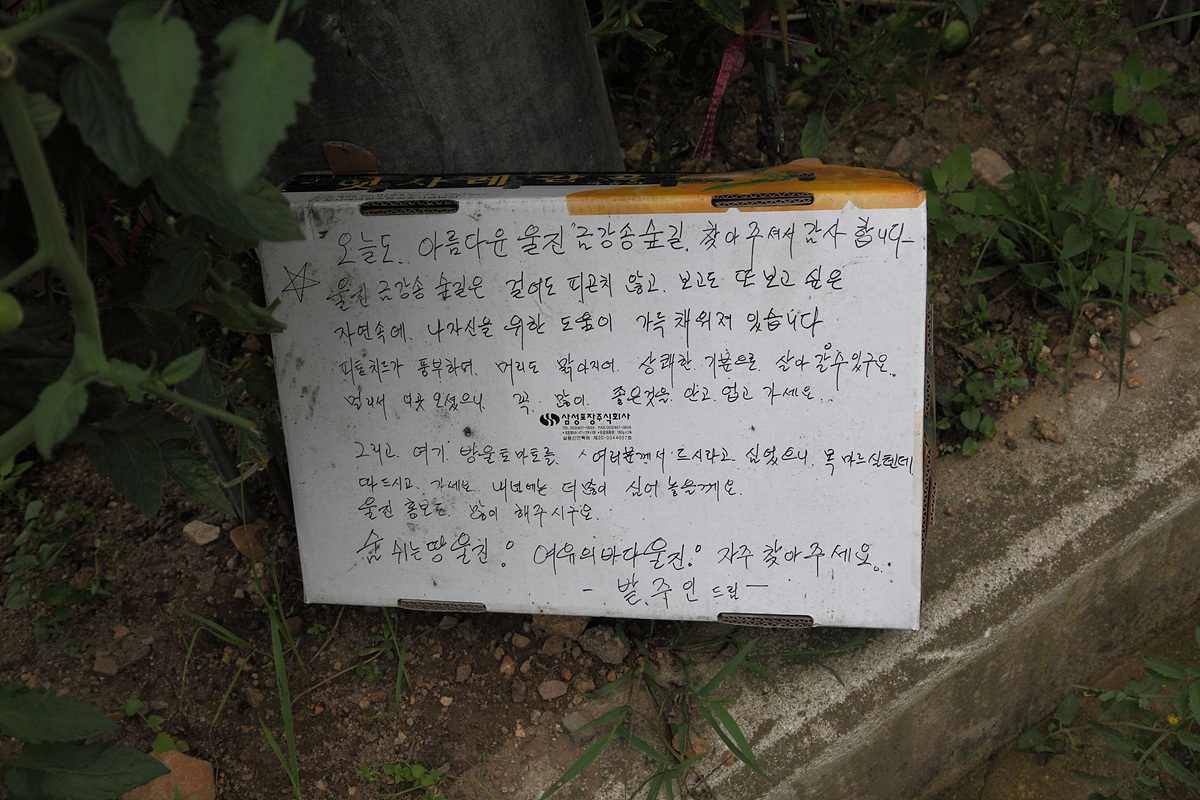 오늘도. 아름다운 울진 금강송 숲길. 찾아 주셔서 감사 합니다
☆ 울진 금강송 숲길은 걸어도 피곤치 않고. 보고도 또 보고 싶은
자연속에. 나자신을 위한 도움이 가득 채워져 있습니다
피톤치드가 풍부하여. 머리도 맑아지며. 상쾌한 기분으로. 살아 갈수 있구요.
멀리서 이곳 오셨으니. 꼭. 많이. 좋은것을 안고. 업고 가세요..
삼성포장주식회사
그리고. 여기. 방울토마토를. 여러분께서 드시라고. 심었으니. 목마르실텐데
따드시고. 가세요. 내년에는 더많이 심어 놓을께요.
울진 홍보도. 많이 해주시구요.
숨쉬는땅울진! 여유의바다울진! 자주찾아주세요..
- 밭.주인 드림 -